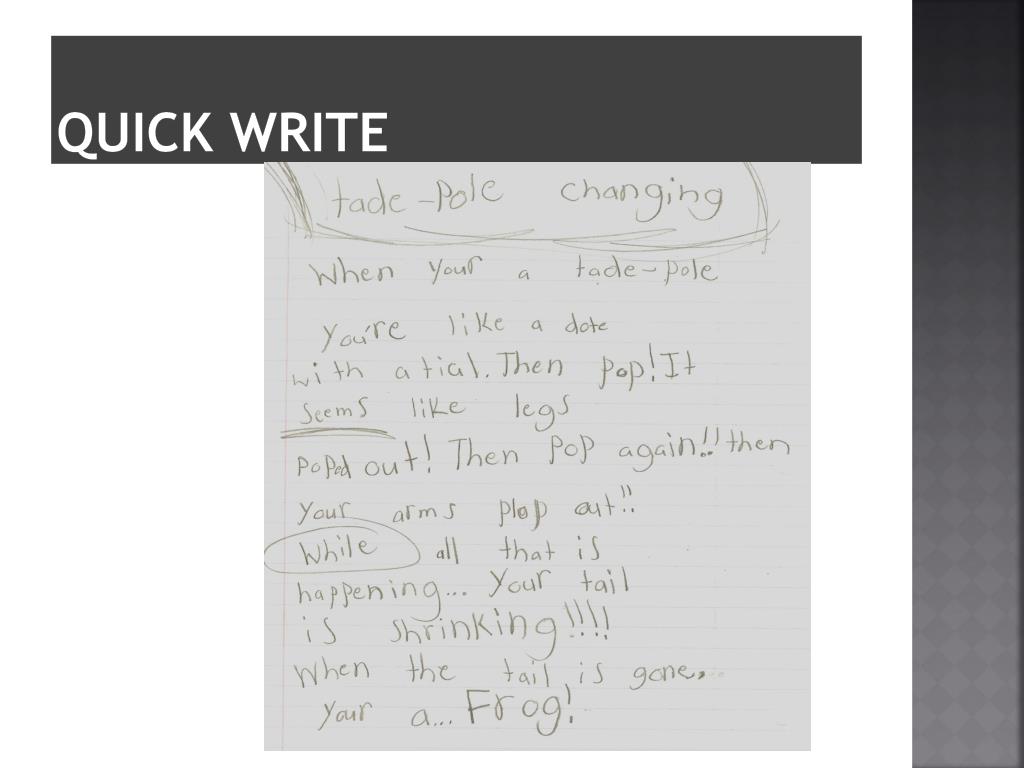 QUICK WRITE
tade-Pole changing
When your a tade-pole
You're like a dote
with a tial. Then pop! It
seems like legs
poped out! Then Pop again!! then
your arms plop out!!
While all that is
happening... your tail
is shrinking!!!!
When the tail is gone,..
your a... Frog!